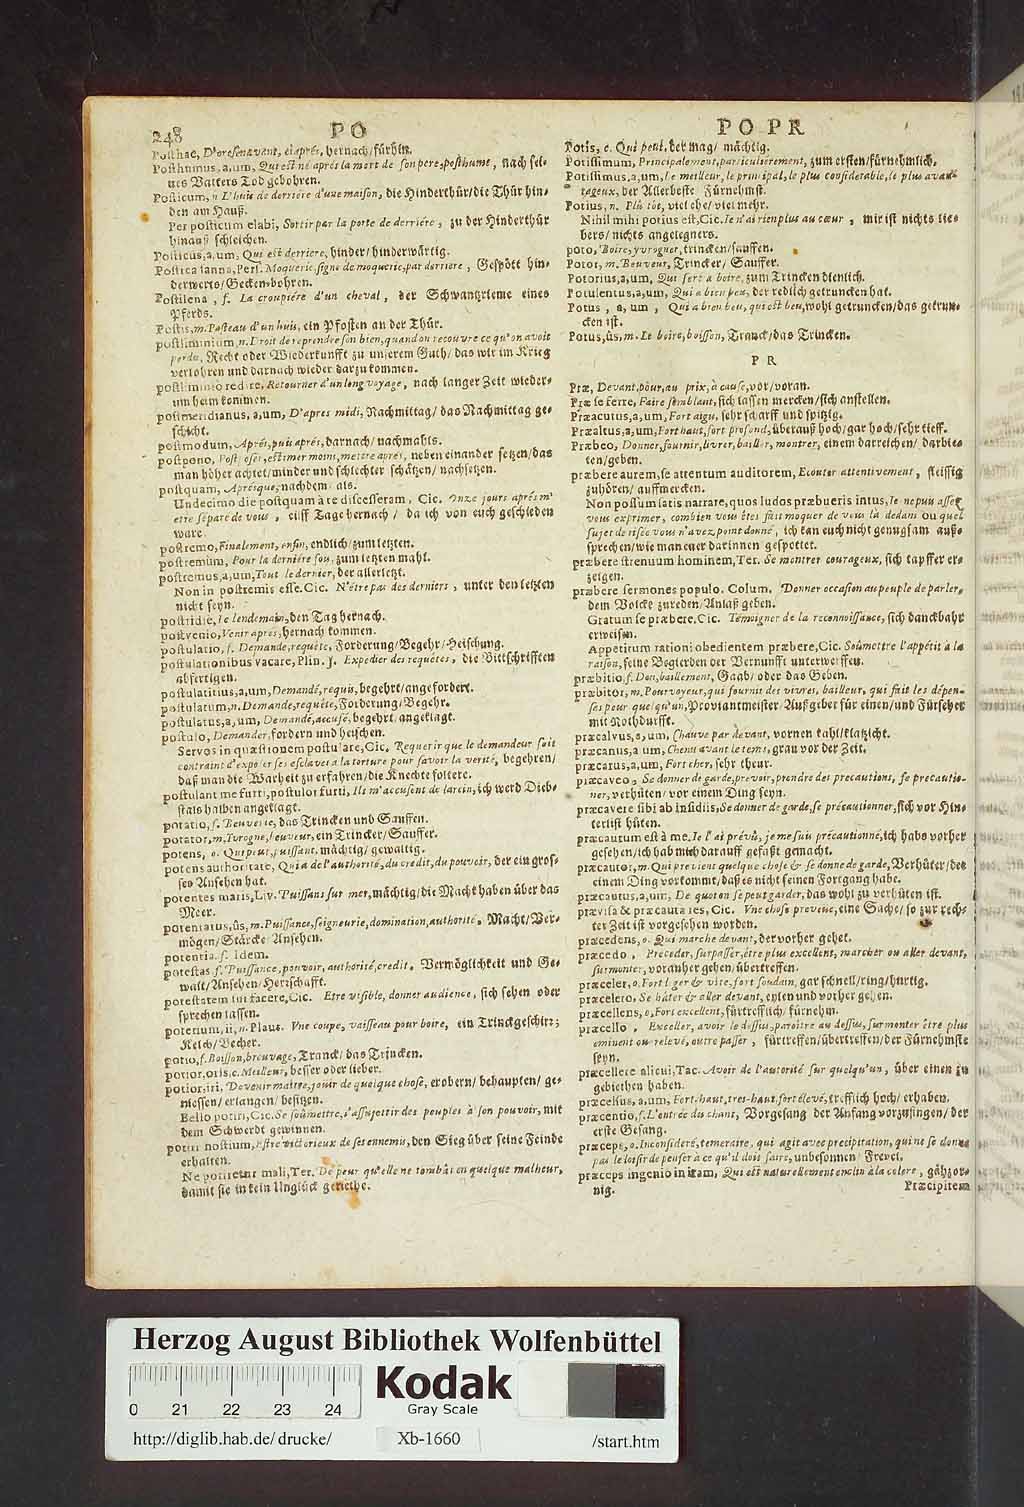 248 PO
Posthac, D'oresenavant, ci aprés, hernach/fürhin.
Posthumus, a, um, Qui est né aprés la mort de son pere, posthume, nach sei-
nes Vatters Tod gebohren.
Posticum, n L'huis de derriére d'une maison, die Hinderthür/die Thür hin-
den am Hauß.
Per posticum elabi, Sortir par la porte de derriére, zu der Hinderthür
hinauß schleichen.
Posticus, a, um, Qui est derriere, hinder/hinderwärtig.
Postica sanna, Pers. Moquerie, signe de moquerie, par derriere, Gespött hin-
derwerts/Gecken-bohren.
Postilena, f. La croupiére d'un cheval, der Schwantzrieme eines
Pferds.
Postis, m. Posteau d'un huis, ein Pfosten an der Thür.
postliminium, n. Droit de reprendre son bien, quand on recouvre ce qu'on avoit
perdu, Recht oder Wiederkunfft zu unserem Guth/das wir im Krieg
verlohren und darnach wieder darzu kommen.
postliminio redire, Retourner d'un long voyage, nach langer Zeit wieder-
um heim kommen.
postmeridianus, a, um, D'apres midi, Nachmittag/das Nachmittag ge-
schicht.
postmodum, Aprés, puis aprés, darnach/nachmahls.
postpono, Postposer, estimer moins, mettre aprés, neben einander setzen/das
man höher achtet/minder und schlechter schätzen/nachsetzen.
postquam, Apresque, nachdem/als.
Undecimo die postquam à te discesseram, Cic. Onze jours aprés m'
etre separé de vous, eilff Tage hernach/da ich von euch geschieden
ware.
postremo, Finalement, enfin, endlich/zum letzten.
postremùm, Pour la derniére fois, zum letzten mahl.
postremus, a, um, Tout le dernier, der allerletzt.
Non in postremis esse. Cic. N'étre pas des derniers, unter den letzten
nicht seyn.
postridie, Le lendemain, den Tag hernach.
postvenio, Venir aprés, hernach kommen.
postulatio, f. Demande, requête, Forderung/Begehr/Heischung.
postulationibus vacare, Plin. j. Expedier des requêtes, die Bittschrifften
abfertigen.
postulatitius, a, um, Demandé, requis, begehrt/angefordert.
postulatum, n. Demande, requête, Forderung/Begehr.
postulatus, a, um, Demandé, accusé, begehrt, angeklagt.
postulo, Demander, fordern und heischen.
Servos in quæstionem postulare, Cic. Requerir que le demandeur soit
contraint d'exposer ses esclaves a la torture pour savoir la verité, begehren/
daß man die Warheit zu erfahren/die Knechte foltere.
postulant me furti, postulor furti, Ils m'accusent de larcin, ich werd Dieb-
stals halben angeklagt.
potatio, f. Beuverie, das Trincken und Sauffen.
potator, m, Yvrogne, beuveur, ein Trincker/Sauffer.
potens, o. Qui peut, puissant, mächtig/gewaltig.
potens authoritate, Qui a de l'authorité, du credit, du pouvoir, der ein gros-
ses Ansehen hat.
potentes maris, Liv. Puissans sur mer, mächtig/die Macht haben über das
Meer.
potentatus, ûs, m. Puissance, seigneurie, domination, authorité, Macht/Ver-
mögen/Stärcke Ansehen.
potentia, f. Idem.
potestas f. Puissance, pouvoir, authorité, credit, Vermöglichkeit und Ge-
walt/Ansehen/Herrschafft.
potestatem sui facere, Cic. Etre visible, donner audience, sich sehen oder
sprechen lassen.
poterium, ii, n. Plaut. Vne coupe, vaisseau pour boire, ein Trinckgeschirr;
Kelch/Becher.
potio, f. Boisson, breuvage, Tranck/das Trincken.
potior, oris, c. Meilleur, besser oder lieber.
potior, iri, Devenir maitre, jouir de quelque chose, erobern/behaupten/ge-
niessen/erlangen/besitzen.
Bello potiri, Cic. Se soûmettre, s'assujettir des peuples à son pouvoir, mit
dem Schwerdt gewinnen.
potiri hostium, Estre victorieux de ses ennemis, den Sieg über seine Feinde
erhalten.
Ne potiretur mali, Ter. De peur qu'elle ne tombât en quelque malheur,
damit sie in kein Unglück geriethe.
PO PR
Potis, c. Qui peut, der mag/mächtig.
Potissimum, Principalement, particulierement, zum ersten/fürnehmlich.
Potissimus, a, um, le meilleur, le principal, le plus considerable, le plus avan-
tageux, der Allerbeste Fürnehmst.
Potius, n. Plû tôt, viel ehe/viel mehr.
Nihil mihi potius est, Cic. Je n'ai rien plus au cœur, mir ist nichts lie-
bers/nichts angelegners.
poto, Boire, yvrogner, trincken/sauffen.
Potor, m. Beuveur, Trincker/Sauffer.
Potorius, a, um, Qui sert a boire, zum Trincken dienlich.
Potulentus, a, um, Qui a bien peu, der redlich getruncken hat.
Potus, a, um, Qui a bien beu, qui est beu, wohl getruncken/das getrun-
cken ist.
Potus, ûs, m. Le boire, boisson, Tranck/das Trincken.
PR
Præ, Devant, pour, au prix, à cause, vor/voran.
Præ se ferre, Faire semblant, sich lassen mercken/sich anstellen.
Præacutus, a, um, Fort aigu, sehr scharff und spitzig.
Præaltus, a, um, Fort haut, fort profond, überauß hoch/gar hoch/sehr tieff.
Præbeo, Donner, fournir, livrer, bailler, montrer, einem darreichen/darbie-
ten/geben.
præbere aurem, se attentum auditorem, Ecouter attentivement, fleissig
zuhören/auffmercken.
Non possum satis narrare, quos ludos præbueris intus, Je ne puis assez
vous exprimer, combien vous êtes fait moquer de vous là dedans ou quel
sujet de risée vous n'avez point donné, ich kan euch nicht genugsam auß-
sprechen/wie man euer darinnen gespottet.
præbere strenuum hominem, Ter. Se montrer courageux, sich tapffer er-
zeigen.
præbere sermones populo. Colum. Donner occasion au peuple de parler,
dem Volcke zureden/Anlaß geben.
Gratum se præbere, Cic. Témoigner de la reconnoissance, sich danckbahr
erweisen.
Appetitum rationi obedientem præbere, Cic. Soûmettre l'appétit à la
raison, seine Begierden der Vernunfft unterwerffen.
præbitio, f. Don, baillement, Gaab/oder das Geben.
præbitor, m. Pourvoyeur, qui fournit des vivres, bailleur, qui fait les dépen-
ses pour quelqu'un, Proviantmeister/Außgeber für einen/und Fürseher
mit Nothdurfft.
præcalvus, a, um, Chauve par devant, vornen kahl/klatzicht.
præcanus, a, um, Chenu avant le tems, grau vor der Zeit.
præcarus, a, um, Fort cher, sehr theur.
præcaveo, Se donner de garde, prevoir, prendre des precautions, se precautio-
ner, verhüten/vor einem Ding seyn.
præcavere sibi ab insidiis, Se donner de garde, se précautionner, sich vor Hin-
terlist hüten.
præcautum est à me, Je l'ai prévû, je me suis précautionné, ich habs vorher
gesehen/ich hab mich darauff gefaßt gemacht.
præcautor, m. Qui previent quelque chose & se donne de garde, Verhüter/der
einem Ding vorkommt/daß es nicht seinen Fortgang habe.
præcautus, a, um, De quoi on se peut garder, das wohl zu verhüten ist.
prævisa & præcauta res, Cic. Vne chose preveüe, eine Sache/so zur rech-
ter Zeit ist vorgesehen worden.
præcedens, o. Qui marche devant, der vorher gehet.
præcedo, Preceder, surpasser, étre plus excellent, marcher ou aller devant,
surmonter, voranher gehen/übertreffen.
præceler, o. Fort leger & vite, fort soudain, gar schnell/ring/hurtig.
præcelero, Se hâter & aller devant, eylen und vorher gehen.
præcellens, o, Fort excellent, fürtrefflich/fürnehm.
præcello, Exceller, avoir le dessus, paroitre au dessus, surmonter étre plus
eminent ou relevé, outrepasser, fürtreffen/übertreffen/der Fürnehmste
seyn.
præcellere alicui, Tac. Avoir de l'autorité sur quelqu'un, über einen zu
gebiethen haben.
præcelsus, a, um, Fort haut, tres-haut, fort élevé, trefflich hoch/erhaben.
præcentio, f. L'entrée du chant, Vorgesang der Anfang vorzusingen/der
erste Gesang.
præceps, o. Inconsideré, temeraire, qui agit avec precipitation, qui ne se donne
pas le loisir de penser à ce qu'il doit faire, unbesonnen/Frevel.
præceps ingenio in iram, Qui est naturellement enclin à la colere, gähzor-
nig. Præcipitem
Herzog August Bibliothek Wolfenbüttel
Kodak
Gray Scale
0 21 22 23 24
http://diglib.hab.de/drucke/ Xb-1660 /start.htm